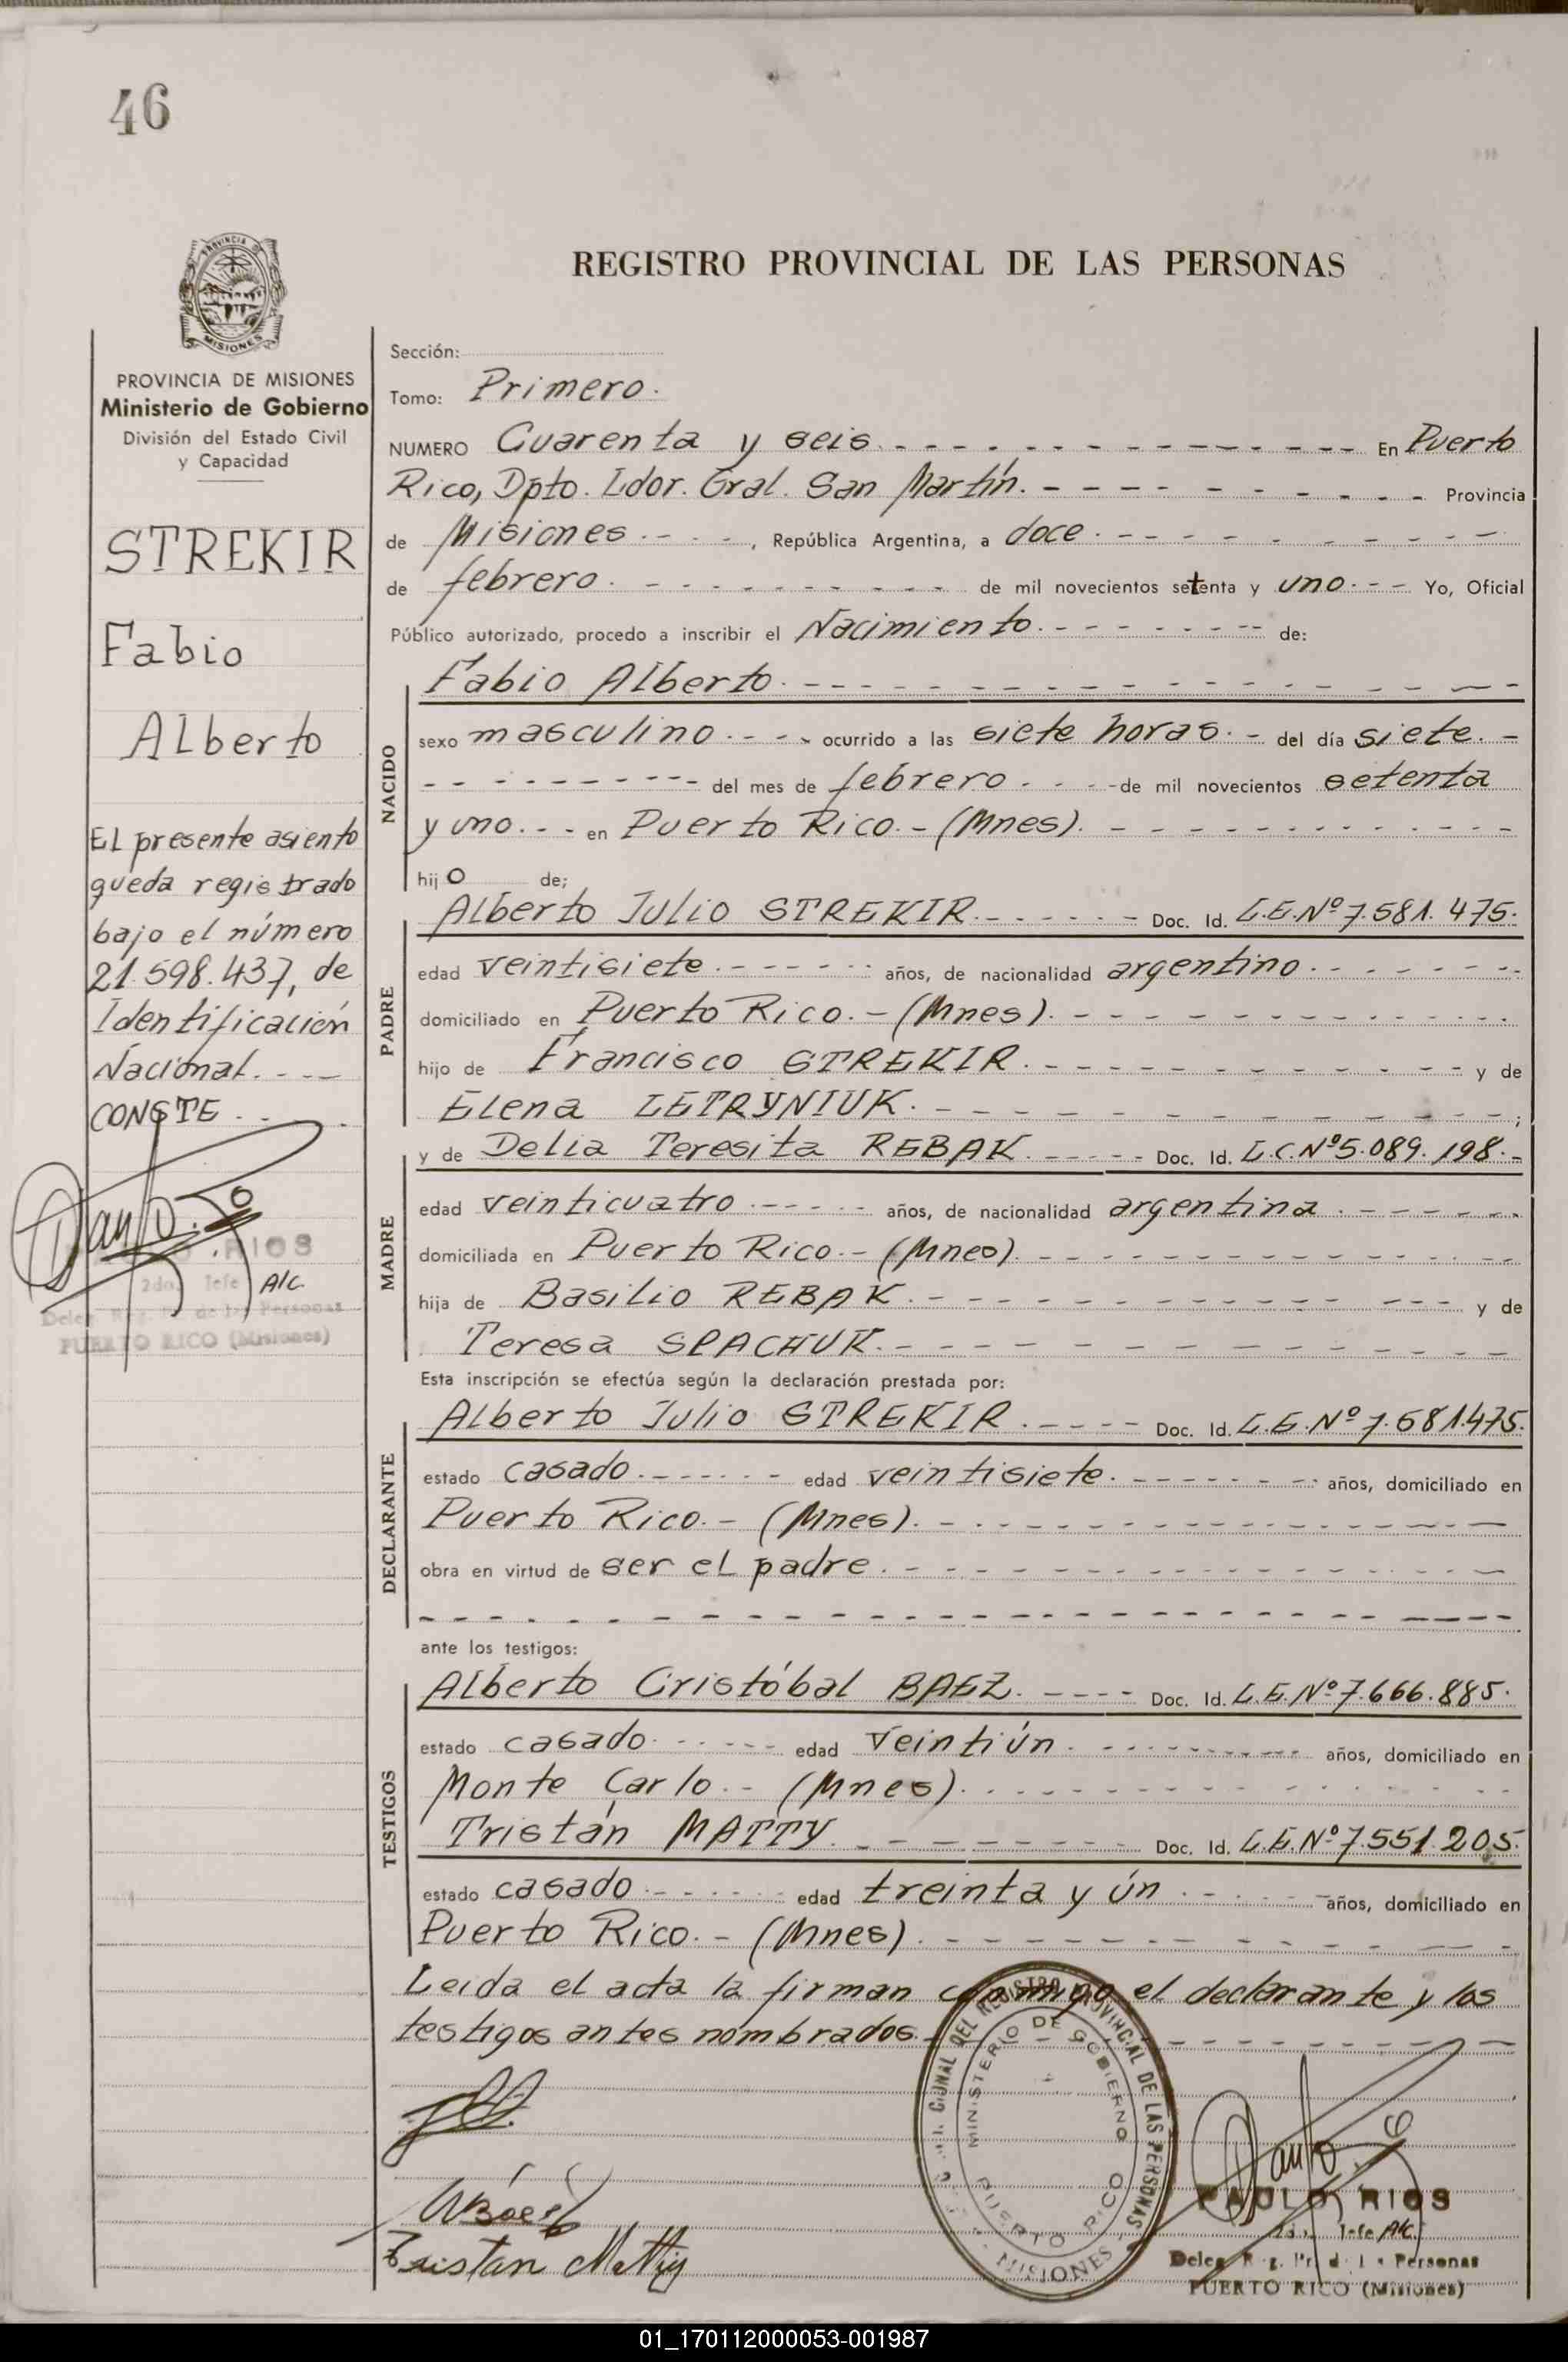 46
REGISTRO PROVINCIAL DE LAS PERSONAS
MISIONES
PROVINCIA DE MISIONES
Ministerio de Gobierno
División del Estado Civil
y Capacidad
STREKIR
Fabio
Alberto
El presente asiento
queda registrado
bajo el número
21.598.437, de
Identificación
Nacional. - - -
CONSTE. - .
RIOS
2do. Jefe A/C.
Deleg. Reg. Pr. de las Personas
PUERTO RICO (Misiones)
Sección:
Tomo: Primero.
NUMERO Cuarenta y seis. - - - En Puerto
Rico, Dpto. Ldor. Gral. San Martín. - - - Provincia
de Misiones. - - -, República Argentina, a doce. - - -
de febrero. - - - de mil novecientos setenta y uno. - - Yo, Oficial
Público autorizado, procedo a inscribir el Nacimiento. - - - de:
NACIDO
Fabio Alberto. - - -
sexo masculino. - - - ocurrido a las siete horas. - del día siete. -
- - - del mes de febrero. - - - de mil novecientos setenta
y uno. - - en Puerto Rico. - (Mnes). - - -
hijo de;
PADRE
Alberto Julio STREKIR. - - - Doc. Id. L.E. Nº 7.581.475.
edad veintisiete. - - - años, de nacionalidad argentino. - - -
domiciliado en Puerto Rico. - (Mnes). - - -
hijo de Francisco STREKIR. - - - y de
Elena LETRYNIUK. - - - ;
MADRE
y de Delia Teresita REBAK. - - - Doc. Id. L.C. Nº 5.089.198. -
edad veinticuatro. - - - años, de nacionalidad argentina. - - -
domiciliada en Puerto Rico. - (Mnes). - - -
hija de Basilio REBAK. - - - y de
Teresa SPACHUK. - - -
Esta inscripción se efectúa según la declaración prestada por:
DECLARANTE
Alberto Julio STREKIR. - - - Doc. Id. L.E. Nº 7.581.475.
estado casado. - - - edad veintisiete. - - - años, domiciliado en
Puerto Rico. - (Mnes). - - -
obra en virtud de ser el padre. - - -
ante los testigos:
TESTIGOS
Alberto Cristóbal BAEZ. - - - Doc. Id. L.E. Nº 7.666.885.
estado casado. - - - edad veintiún. - - - años, domiciliado en
Monte Carlo. - (Mnes). - - -
Tristán MATTY. - - - Doc. Id. L.E. Nº 7.551.205.
estado casado. - - - edad treinta y ún. - - - años, domiciliado en
Puerto Rico. - (Mnes). - - -
Leida el acta la firman conmigo el declarante y los
testigos antes nombrados. - - -
CIONAL DEL REGISTRO PROVINCIAL DE LAS PERSONAS
MINISTERIO DE GOBIERNO
PUERTO RICO
- MISIONES -
Tristan Matty
PAULO RIOS
2do. Jefe A/C.
Deleg. Reg. Pr. de las Personas
PUERTO RICO (Misiones)
01_170112000053-001987